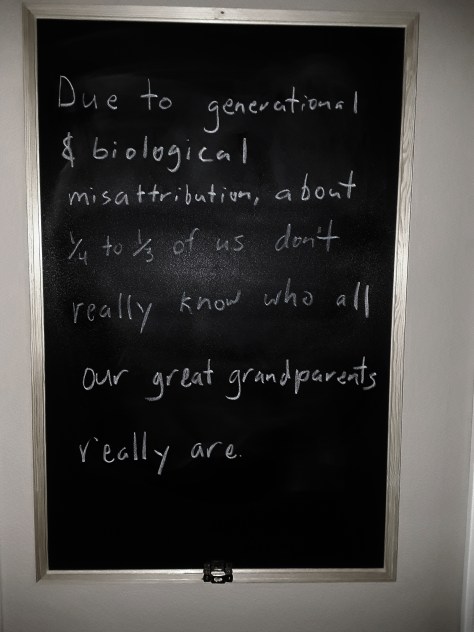 Due to generational
& biological
misattribution, about
1/4 to 1/3 of us don't
really know who all
our great grandparents
really are.